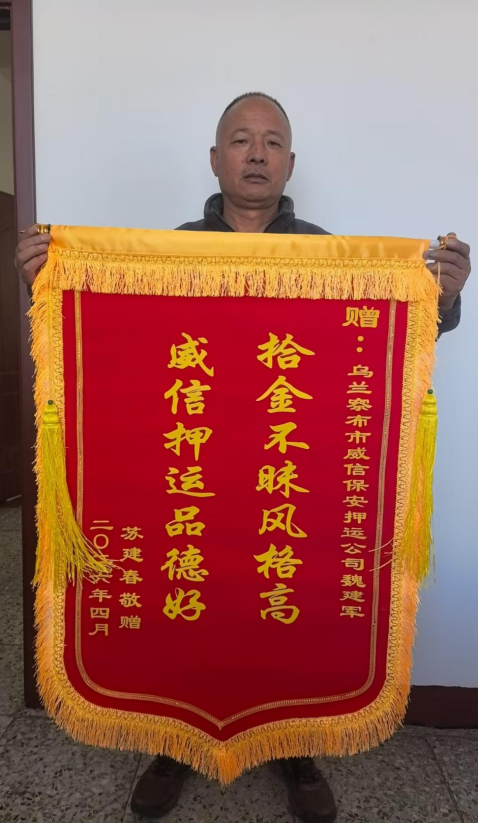 赠：乌兰察布市威信保安押运公司魏建军
拾金不昧风格高
威信押运品德好
苏建春敬赠
二〇 六年四月